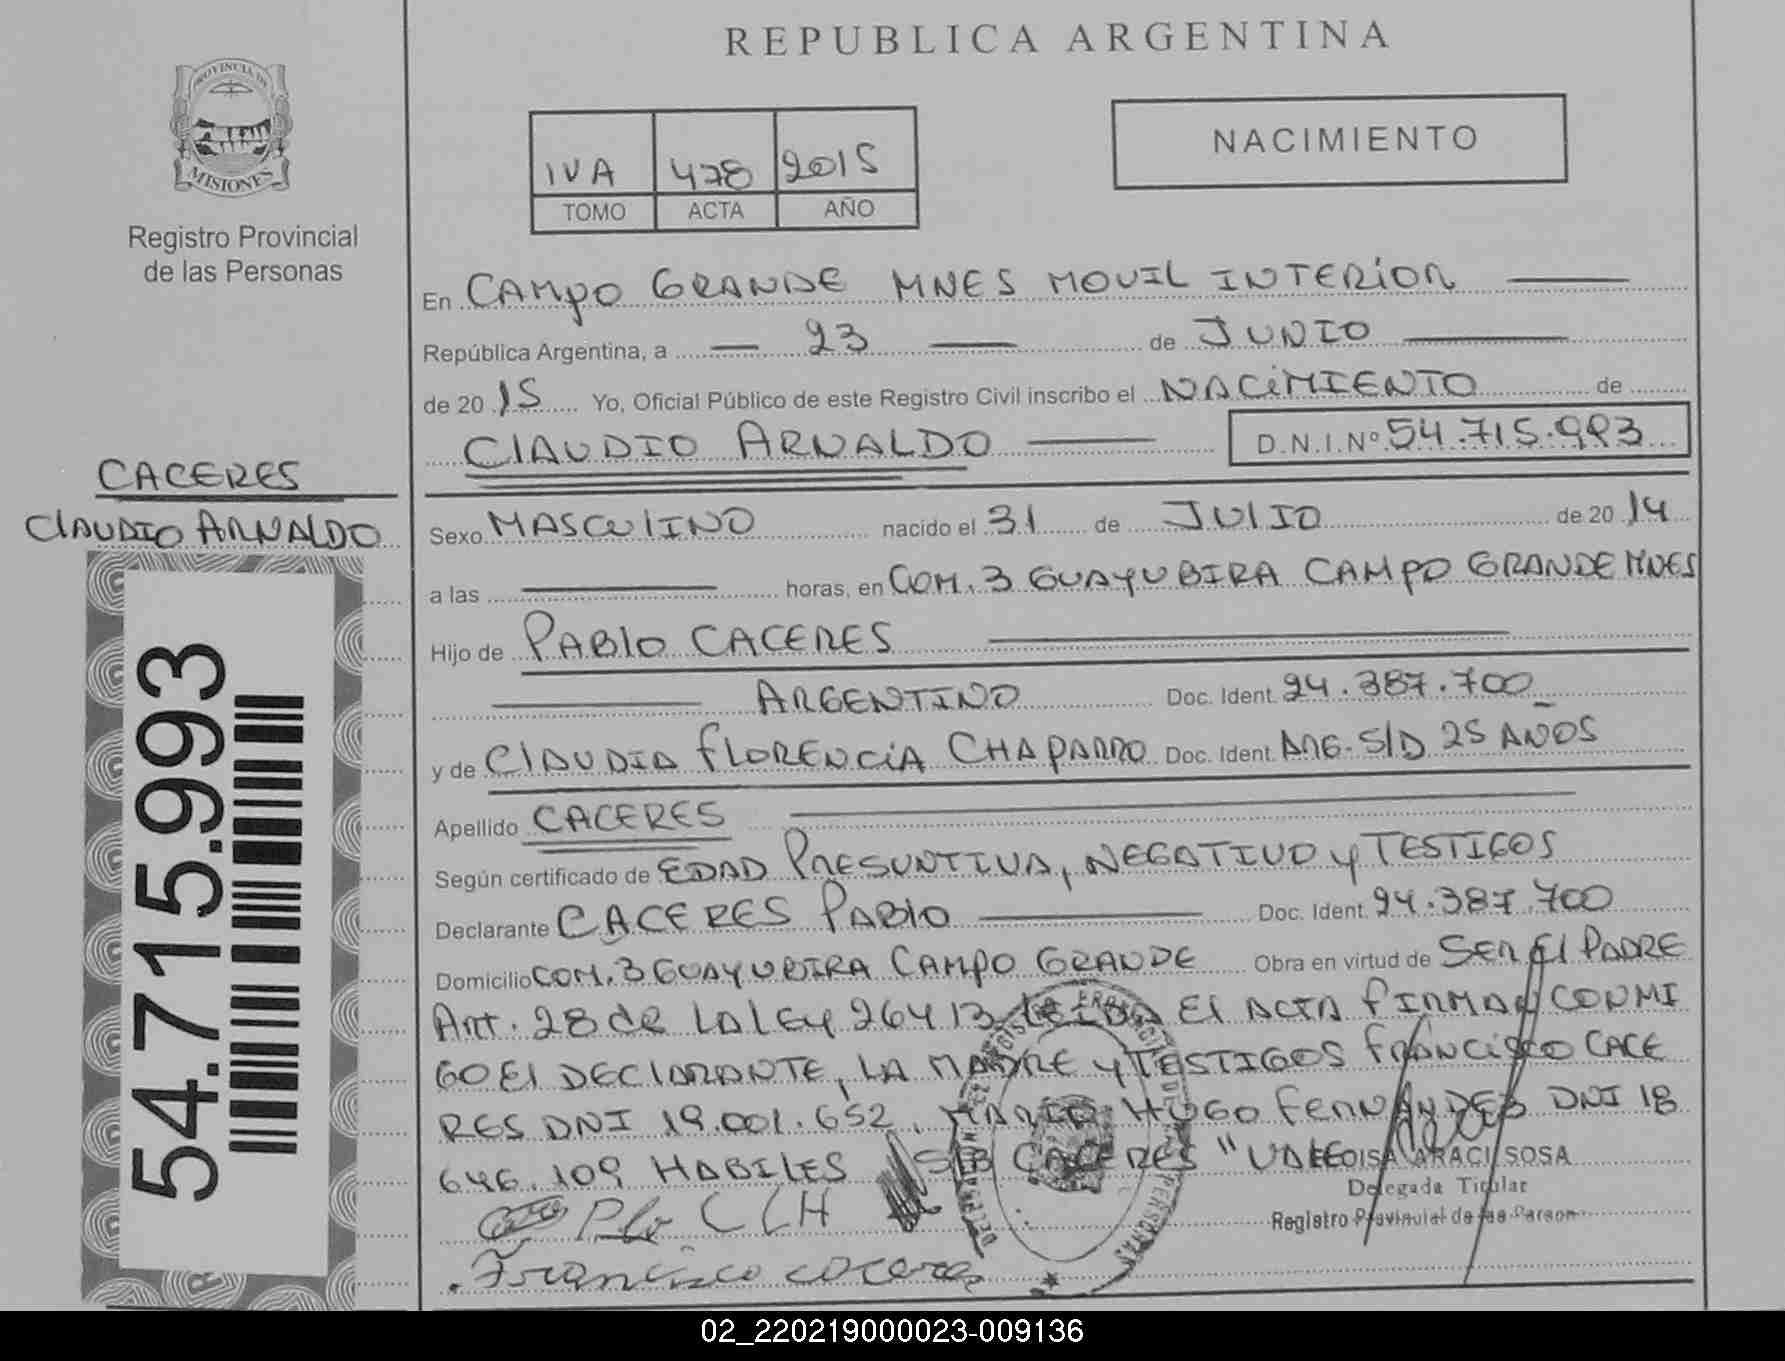 REPUBLICA ARGENTINA
PROVINCIA DE
MISIONES
Registro Provincial
de las Personas
IVA 478 2015
TOMO ACTA AÑO
NACIMIENTO
En CAMPO GRANDE MNES MOVIL INTERIOR
República Argentina, a 23 de JUNIO
de 2015 Yo, Oficial Público de este Registro Civil inscribo el NACIMIENTO de
CLAUDIO ARNALDO D.N.I.Nº 54.715.993
CACERES
CLAUDIO ARNALDO
54.715.993
Sexo MASCULINO nacido el 31 de JULIO de 2014
a las horas, en COM. 3 GUAYUBIRA CAMPO GRANDE MNES
Hijo de PABLO CACERES
ARGENTINO Doc. Ident. 94.387.700
y de CLAUDIA FLORENCIA CHAPARRO Doc. Ident. ARG. S/D 25 AÑOS
Apellido CACERES
Según certificado de EDAD PRESUNTIVA, NEGATIVO y TESTIGOS
Declarante CACERES PABLO Doc. Ident. 94.387.700
Domicilio COM. 3 GUAYUBIRA CAMPO GRANDE Obra en virtud de SER EL PADRE
Art. 28 de LA LEY 26413 LEIDA EL ACTA FIRMAN CONMI
GO EL DECLARANTE, LA MADRE y TESTIGOS FRANCISCO CACE
RES DNI 19.001.652, MARIO HUGO FERNANDES DNI 18
646.109 HABILES S/B CACERES "VALE
ELOISA ARACI SOSA
Delegada Titular
Registro Provincial de las Person
CLH
Francisco cacere
02_220219000023-009136